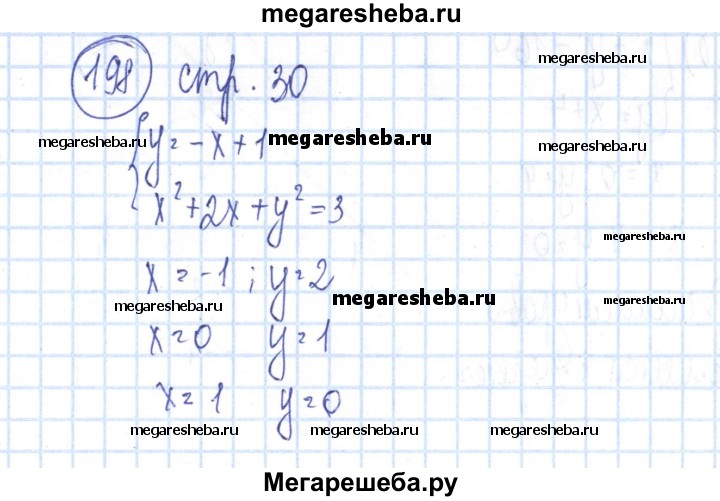 megaresheba.ru
198 стр. 30
megaresheba.ru
megaresheba.ru y = -x + 1 megaresheba.ru megaresheba.ru
x² + 2x + y² = 3
megaresheba.ru
x = -1 ; y = 2
megaresheba.ru megaresheba.ru megaresheba.ru
x = 0 y = 1
x = 1 y = 0
megaresheba.ru megaresheba.ru megaresheba.ru
Мегарешеба.ру